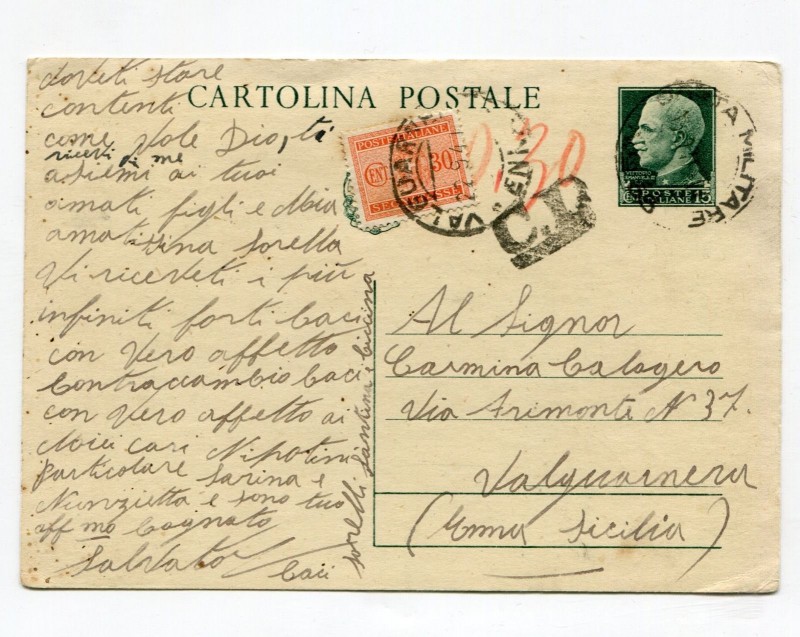 CARTOLINA POSTALE
doveti stare
contenti
come Vole Dio, ti
ricevi di me
asiemi ai tuoi
amati figli e Mia
amati sorella
Vi riceveti i più
infiniti forti baci
con Vero affetto
Contraccambio baci
con Vero affetto ai
Miei cari Nipotini
Particolare Sarina e
Nunzietta e sono tuo
aff mo Cognato
Salvato
baci
sorelli Santina e Ciccina
POSTE ITALIANE
CENT 30
SEGNATASSE
VALGUARNERA
ENNA
0,30
C.P
POSTA MILITARE
VITTORIO
EMANUELE III
POSTE
ITALIANE 15
Al Signor
Carmina Calogero
Via Arimonte N 37.
Valguarnera
(Enna Sicilia)